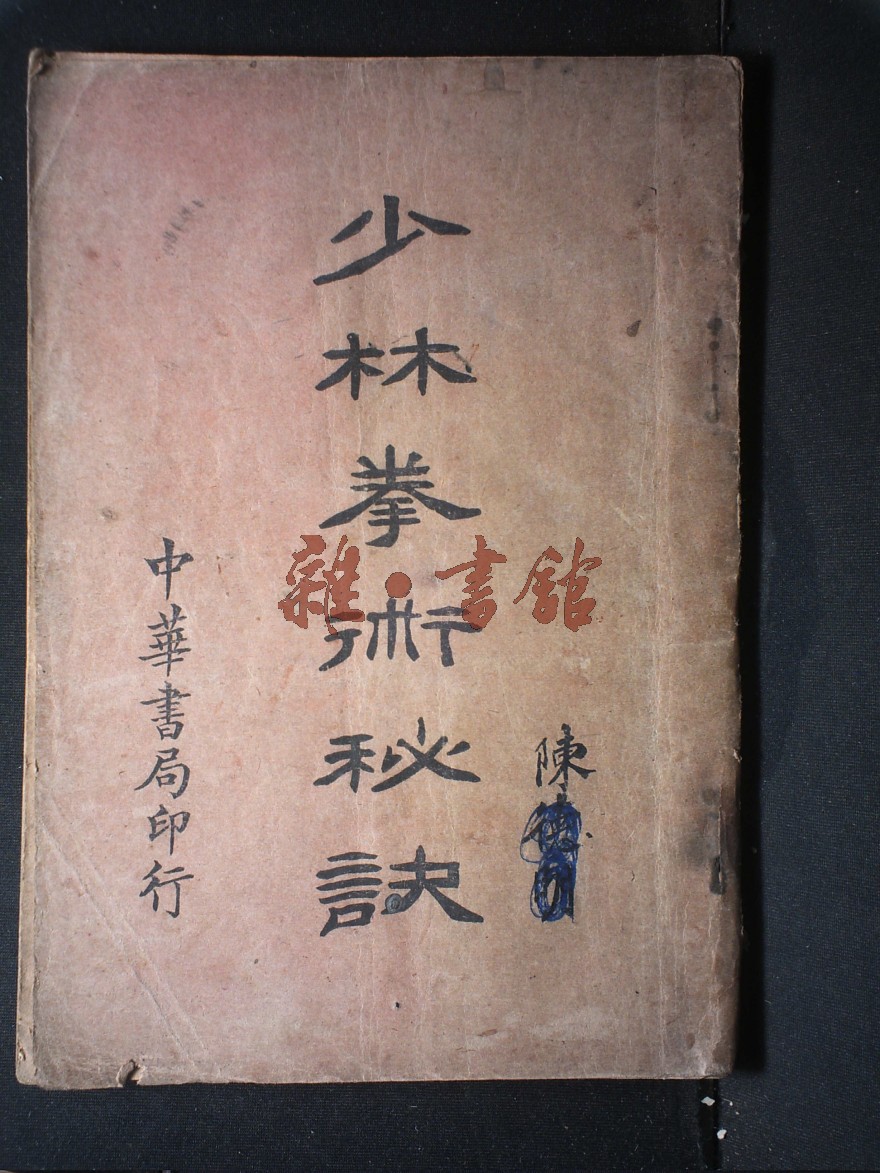 陳
少林拳術秘訣
中華書局印行
雜·書館